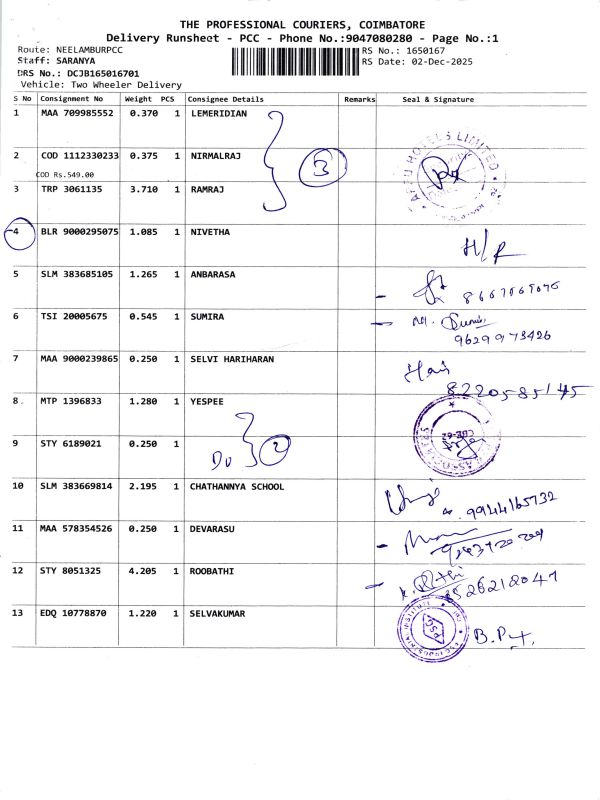 THE PROFESSIONAL COURIERS, COIMBATORE
Delivery Runsheet - PCC - Phone No.:9047080280 - Page No.:1
Route: NEELAMBURPCC
RS No.: 1650167
Staff: SARANYA
RS Date: 02-Dec-2025
DRS No.: DCJB165016701
Vehicle: Two Wheeler Delivery
S No Consignment No Weight PCS Consignee Details Remarks Seal & Signature
1 MAA 709985552 0.370 1 LEMERIDIAN
2 COD 1112330233 0.375 1 NIRMALRAJ
COD Rs.549.00
3
HOTELS LIMITED
3 TRP 3061135 3.710 1 RAMRAJ
4 BLR 9000295075 1.085 1 NIVETHA
H/R
5 SLM 383685105 1.265 1 ANBARASA
6 TSI 20005675 0.545 1 SUMIRA
9629973426
7 MAA 9000239865 0.250 1 SELVI HARIHARAN
Hari
8220585145
8 MTP 1396833 1.280 1 YESPEE
CBE-62
9 STY 6189021 0.250 1
Do 2
10 SLM 383669814 2.195 1 CHATHANNYA SCHOOL
9944165732
11 MAA 578354526 0.250 1 DEVARASU
12 STY 8051325 4.205 1 ROOBATHI
8526218047
13 EDQ 10778870 1.220 1 SELVAKUMAR
PSG
B.P.T.